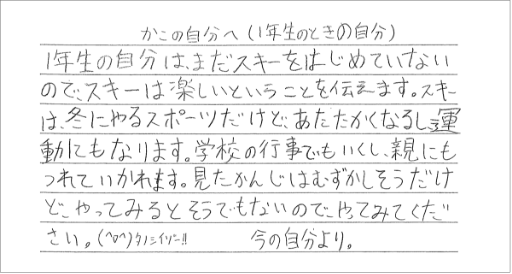 かこの自分へ(1年生のときの自分)
1年生の自分は、まだスキーをはじめていない
ので、スキーは楽しいということを伝えます。スキー
は、冬にやるスポーツだけど、あたたかくなるし、運
動にもなります。学校の行事でもいくし、親にも
つれていかれます。見たかんじはむずかしそうだけ
ど、やってみるとそうでもないので、やってみてくだ
さい。(^o^)タノシイゾー!! 今の自分より。